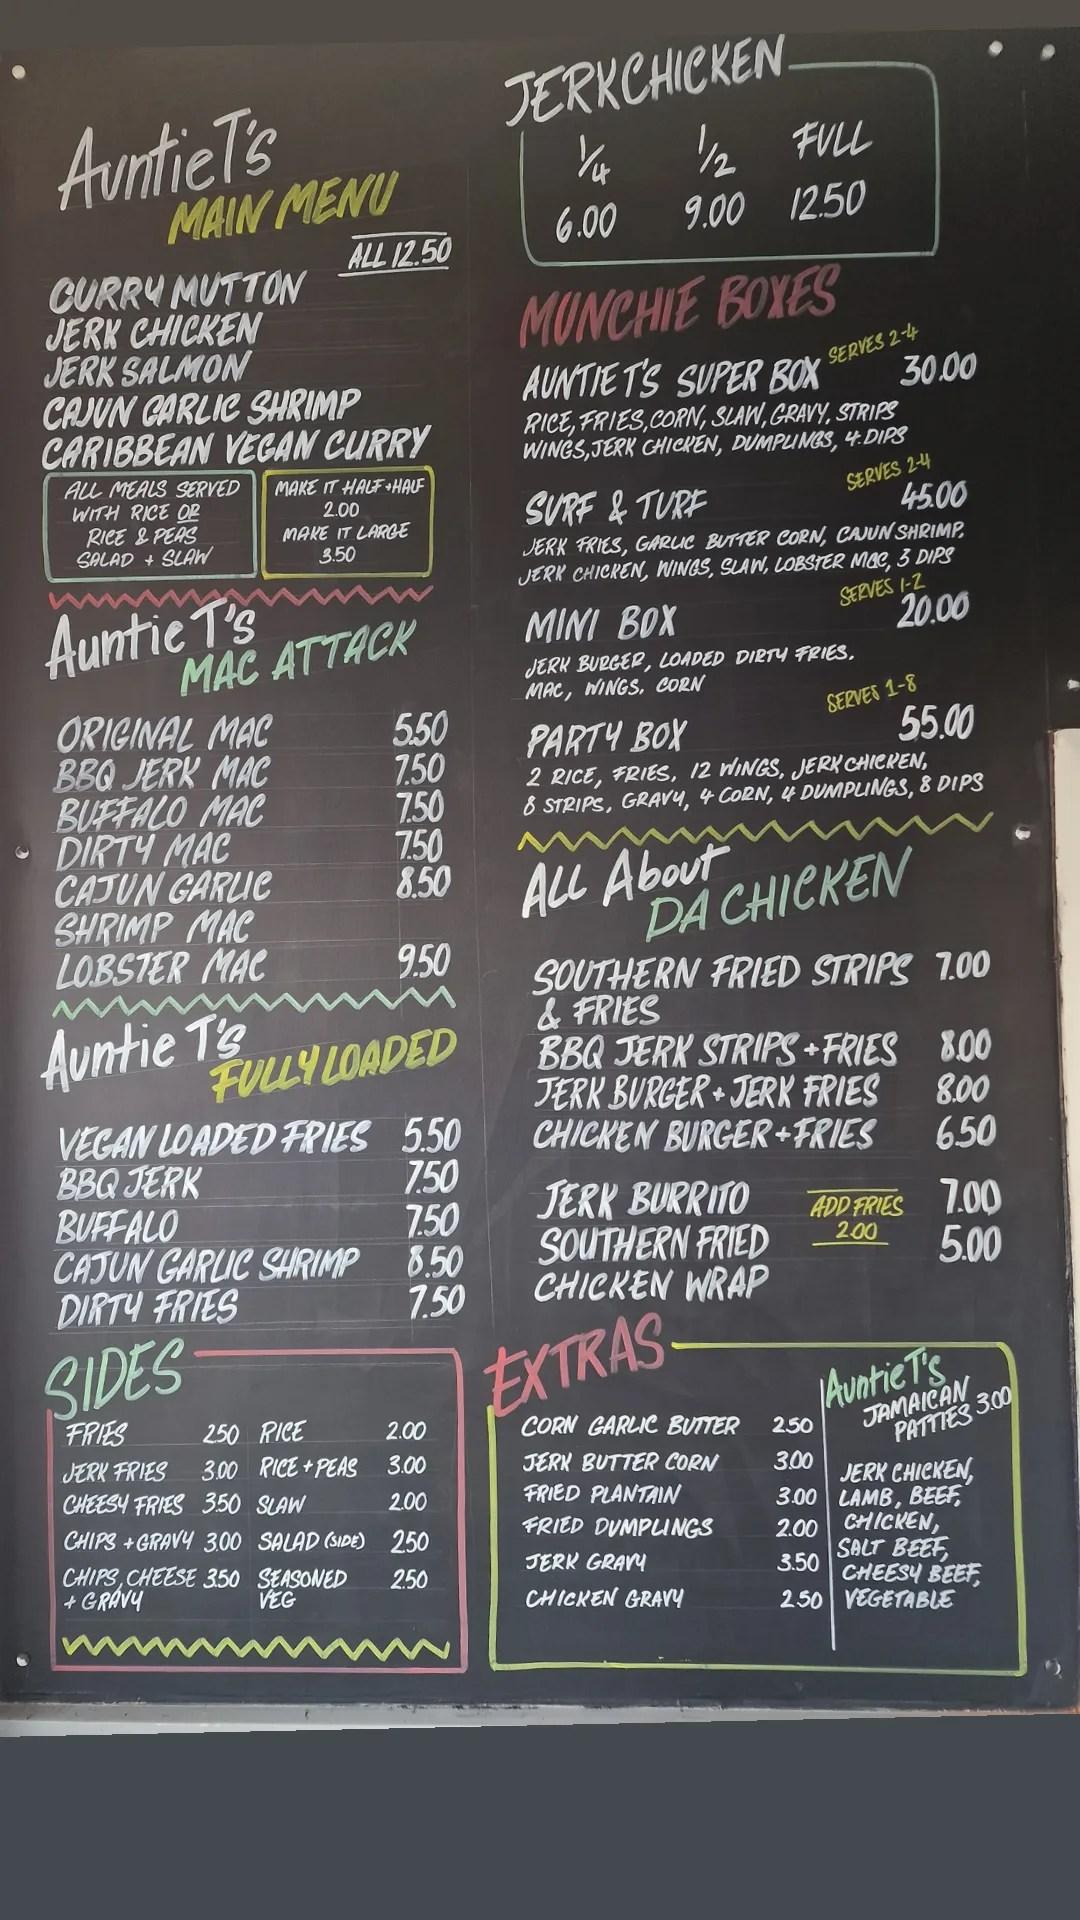 AuntieT's
MAIN MENU
ALL 12.50
CURRY MUTTON
JERK CHICKEN
JERK SALMON
CAJUN GARLIC SHRIMP
CARIBBEAN VEGAN CURRY
ALL MEALS SERVED
WITH RICE OR
RICE & PEAS
SALAD + SLAW
MAKE IT HALF+HALF
2.00
MAKE IT LARGE
3.50
Auntie T's
MAC ATTACK
ORIGINAL MAC 5.50
BBQ JERK MAC 7.50
BUFFALO MAC 7.50
DIRTY MAC 7.50
CAJUN GARLIC 8.50
SHRIMP MAC
LOBSTER MAC 9.50
Auntie T's
FULLY LOADED
VEGAN LOADED FRIES 5.50
BBQ JERK 7.50
BUFFALO 7.50
CAJUN GARLIC SHRIMP 8.50
DIRTY FRIES 7.50
SIDES
FRIES 2.50 RICE 2.00
JERK FRIES 3.00 RICE + PEAS 3.00
CHEESY FRIES 3.50 SLAW 2.00
CHIPS + GRAVY 3.00 SALAD (SIDE) 2.50
CHIPS, CHEESE 3.50 SEASONED 2.50
+ GRAVY VEG
JERKCHICKEN
1/4 1/2 FULL
6.00 9.00 12.50
MUNCHIE BOXES
SERVES 2-4
AUNTIE T'S SUPER BOX 30.00
RICE, FRIES, CORN, SLAW, GRAVY, STRIPS
WINGS, JERK CHICKEN, DUMPLINGS, 4 DIPS
SERVES 2-4
SURF & TURF 45.00
JERK FRIES, GARLIC BUTTER CORN, CAJUN SHRIMP,
JERK CHICKEN, WINGS, SLAW, LOBSTER MAC, 3 DIPS
SERVES 1-2
MINI BOX 20.00
JERK BURGER, LOADED DIRTY FRIES.
MAC, WINGS. CORN
SERVES 1-8
PARTY BOX 55.00
2 RICE, FRIES, 12 WINGS, JERK CHICKEN,
8 STRIPS, GRAVY, 4 CORN, 4 DUMPLINGS, 8 DIPS
ALL About
DA CHICKEN
SOUTHERN FRIED STRIPS 7.00
& FRIES
BBQ JERK STRIPS + FRIES 8.00
JERK BURGER + JERK FRIES 8.00
CHICKEN BURGER + FRIES 6.50
JERK BURRITO 7.00
ADD FRIES
2.00
SOUTHERN FRIED 5.00
CHICKEN WRAP
EXTRAS
CORN GARLIC BUTTER 2.50
JERK BUTTER CORN 3.00
FRIED PLANTAIN 3.00
FRIED DUMPLINGS 2.00
JERK GRAVY 3.50
CHICKEN GRAVY 2.50
AuntieT's
JAMAICAN
PATTIES 3.00
JERK CHICKEN,
LAMB, BEEF,
CHICKEN,
SALT BEEF,
CHEESY BEEF,
VEGETABLE